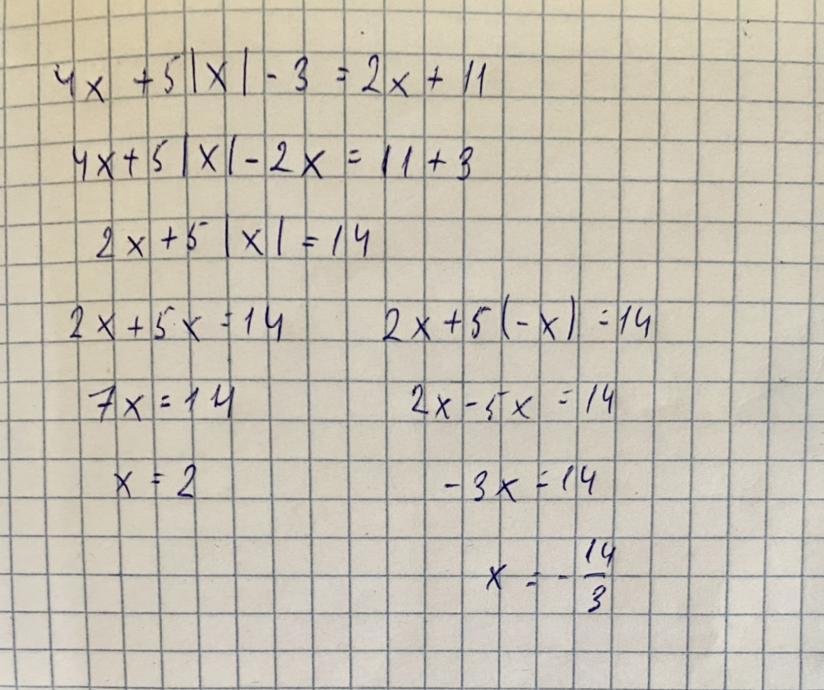 4x + 5|x| - 3 = 2x + 11
4x + 5|x| - 2x = 11 + 3
2x + 5|x| = 14
2x + 5x = 14    2x + 5(-x) = 14
7x = 14    2x - 5x = 14
x = 2    -3x = 14
x = -14/3